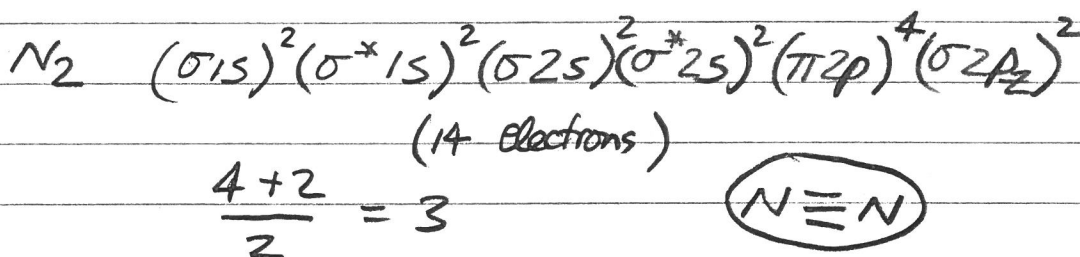 N₂ (σ1s)²(σ*1s)²(σ2s)²(σ*2s)²(π2p)⁴(σ2p_z)²
(14 electrons)
4+2
/2 = 3 N≡N